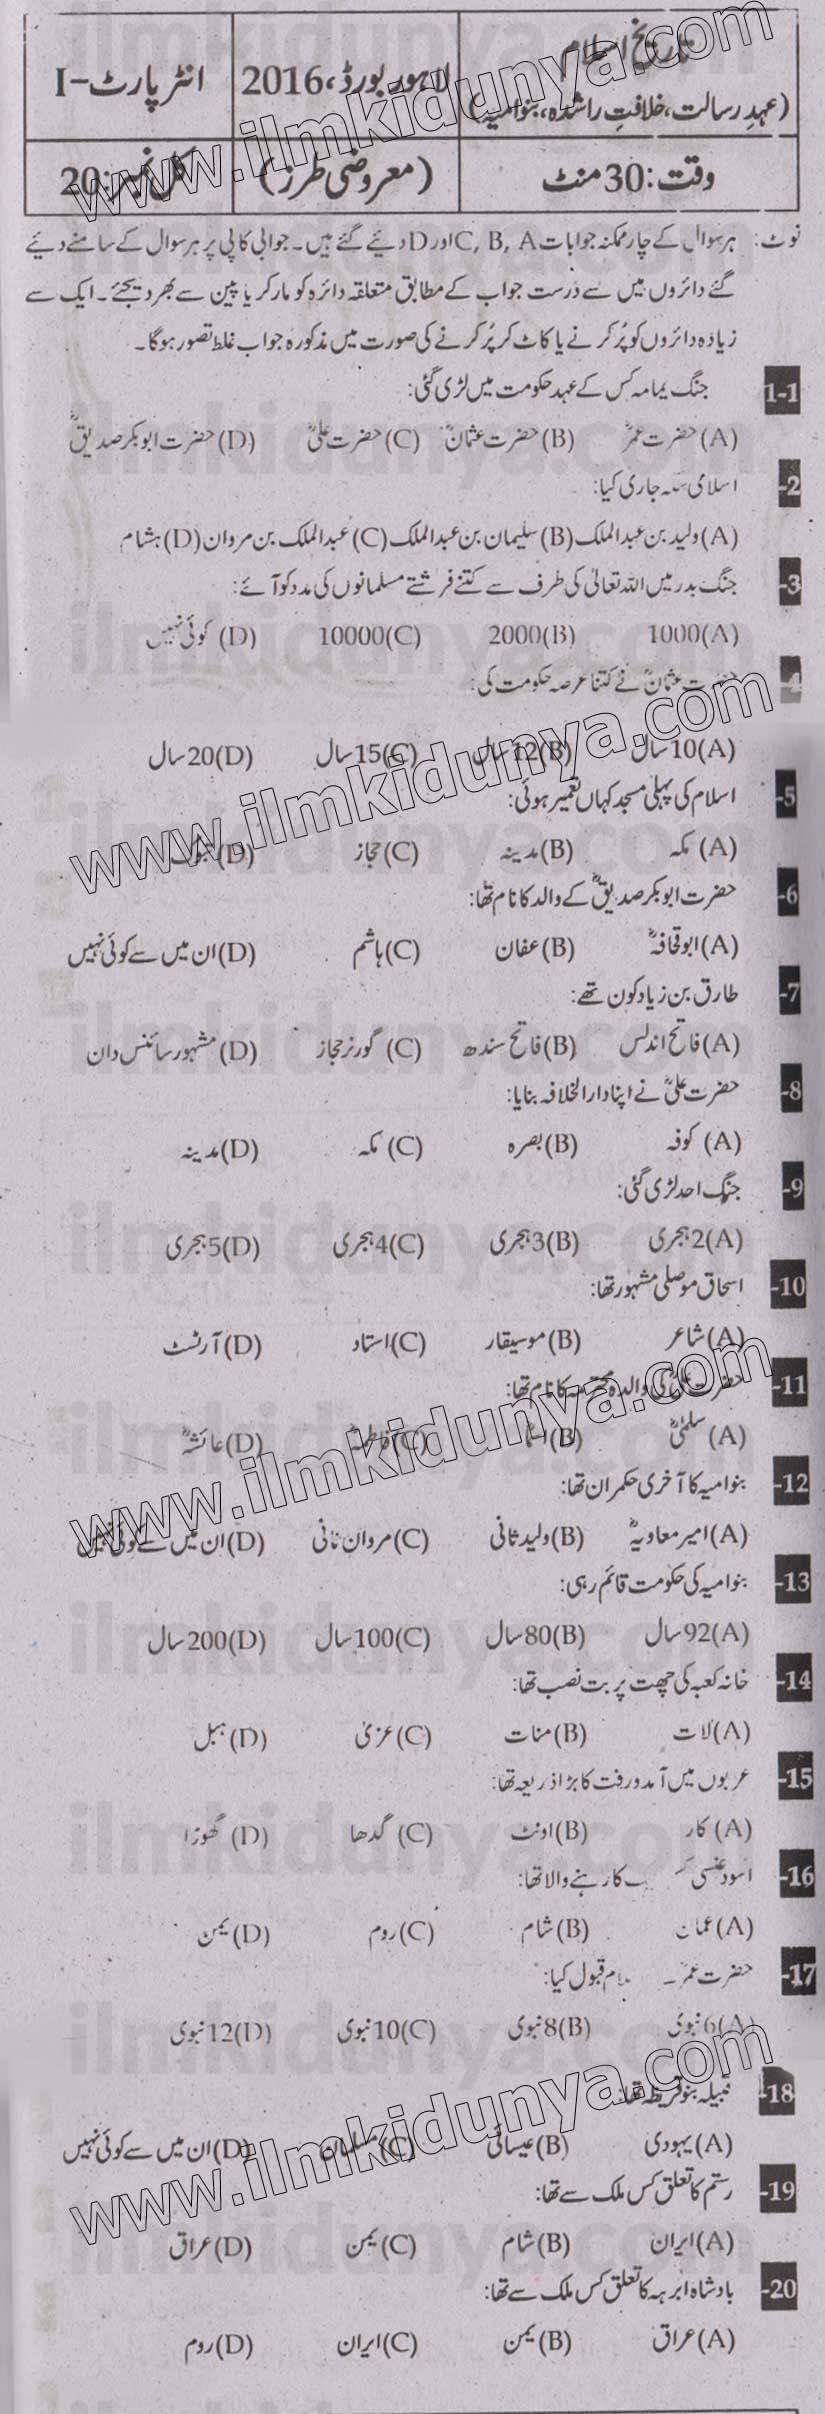 تاریخ اسلام
(عہدِ رسالت، خلافتِ راشدہ، بنو امیہ)
لاہور بورڈ، 2016
انٹر پارٹ-I
وقت: 30 منٹ
(معروضی طرز)
کل نمبر: 20
نوٹ: ہر سوال کے چار ممکنہ جوابات C, B, A اور D دئیے گئے ہیں۔ جوابی کاپی پر ہر سوال کے سامنے دئیے
گئے دائروں میں سے درست جواب کے مطابق متعلقہ دائرہ کو مارکر یا پین سے بھر دیجئے۔ ایک سے
زیادہ دائروں کو پُر کرنے یا کاٹ کر پُر کرنے کی صورت میں مذکورہ جواب غلط تصور ہوگا۔
1-1 جنگ یمامہ کس کے عہد حکومت میں لڑی گئی:
(A) حضرت عمرؓ (B) حضرت عثمانؓ (C) حضرت علیؓ (D) حضرت ابوبکر صدیقؓ
2- اسلامی سکہ جاری کیا:
(A) ولید بن عبدالملک (B) سلیمان بن عبدالملک (C) عبدالملک بن مروان (D) ہشام
3- جنگ بدر میں اللہ تعالیٰ کی طرف سے کتنے فرشتے مسلمانوں کی مدد کو آئے:
(A) 1000 (B) 2000 (C) 10000 (D) کوئی نہیں
4- حضرت عثمانؓ نے کتنا عرصہ حکومت کی:
(A) 10 سال (B) 12 سال (C) 15 سال (D) 20 سال
5- اسلام کی پہلی مسجد کہاں تعمیر ہوئی:
(A) مکہ (B) مدینہ (C) حجاز (D) تبوک
6- حضرت ابوبکر صدیقؓ کے والد کا نام تھا:
(A) ابو قحافہؓ (B) عفان (C) ہاشم (D) ان میں سے کوئی نہیں
7- طارق بن زیاد کون تھے:
(A) فاتح اندلس (B) فاتح سندھ (C) گورنر حجاز (D) مشہور سائنس دان
8- حضرت علیؓ نے اپنا دارالخلافہ بنایا:
(A) کوفہ (B) بصرہ (C) مکہ (D) مدینہ
9- جنگ احد لڑی گئی:
(A) 2 ہجری (B) 3 ہجری (C) 4 ہجری (D) 5 ہجری
10- اسحاق موصلی مشہور تھا:
(A) شاعر (B) موسیقار (C) استاد (D) آرٹسٹ
11- حضرت علیؓ کی والدہ محترمہ کا نام تھا:
(A) سلمیٰؓ (B) اسماؓ (C) فاطمہؓ (D) عائشہؓ
12- بنو امیہ کا آخری حکمران تھا:
(A) امیر معاویہؓ (B) ولید ثانی (C) مروان ثانی (D) ان میں سے کوئی نہیں
13- بنو امیہ کی حکومت قائم رہی:
(A) 92 سال (B) 80 سال (C) 100 سال (D) 200 سال
14- خانہ کعبہ کی چھت پر بت نصب تھا:
(A) لات (B) منات (C) عزیٰ (D) ہبل
15- عربوں میں آمدورفت کا بڑا ذریعہ تھا:
(A) کار (B) اونٹ (C) گدھا (D) گھوڑا
16- اسود عنسی کا رہنے والا تھا:
(A) عمان (B) شام (C) روم (D) یمن
17- حضرت عمرؓ قبول کیا:
(A) 6 نبوی (B) 8 نبوی (C) 10 نبوی (D) 12 نبوی
18- قبیلہ بنو قریظہ تھا:
(A) یہودی (B) عیسائی (C) مسلمان (D) ان میں سے کوئی نہیں
19- رستم کا تعلق کس ملک سے تھا:
(A) ایران (B) شام (C) یمن (D) عراق
20- بادشاہ ابرہہ کا تعلق کس ملک سے تھا:
(A) عراق (B) یمن (C) ایران (D) روم
www.ilmkidunya.com
www.ilmkidunya.com
www.ilmkidunya.com
www.ilmkidunya.com